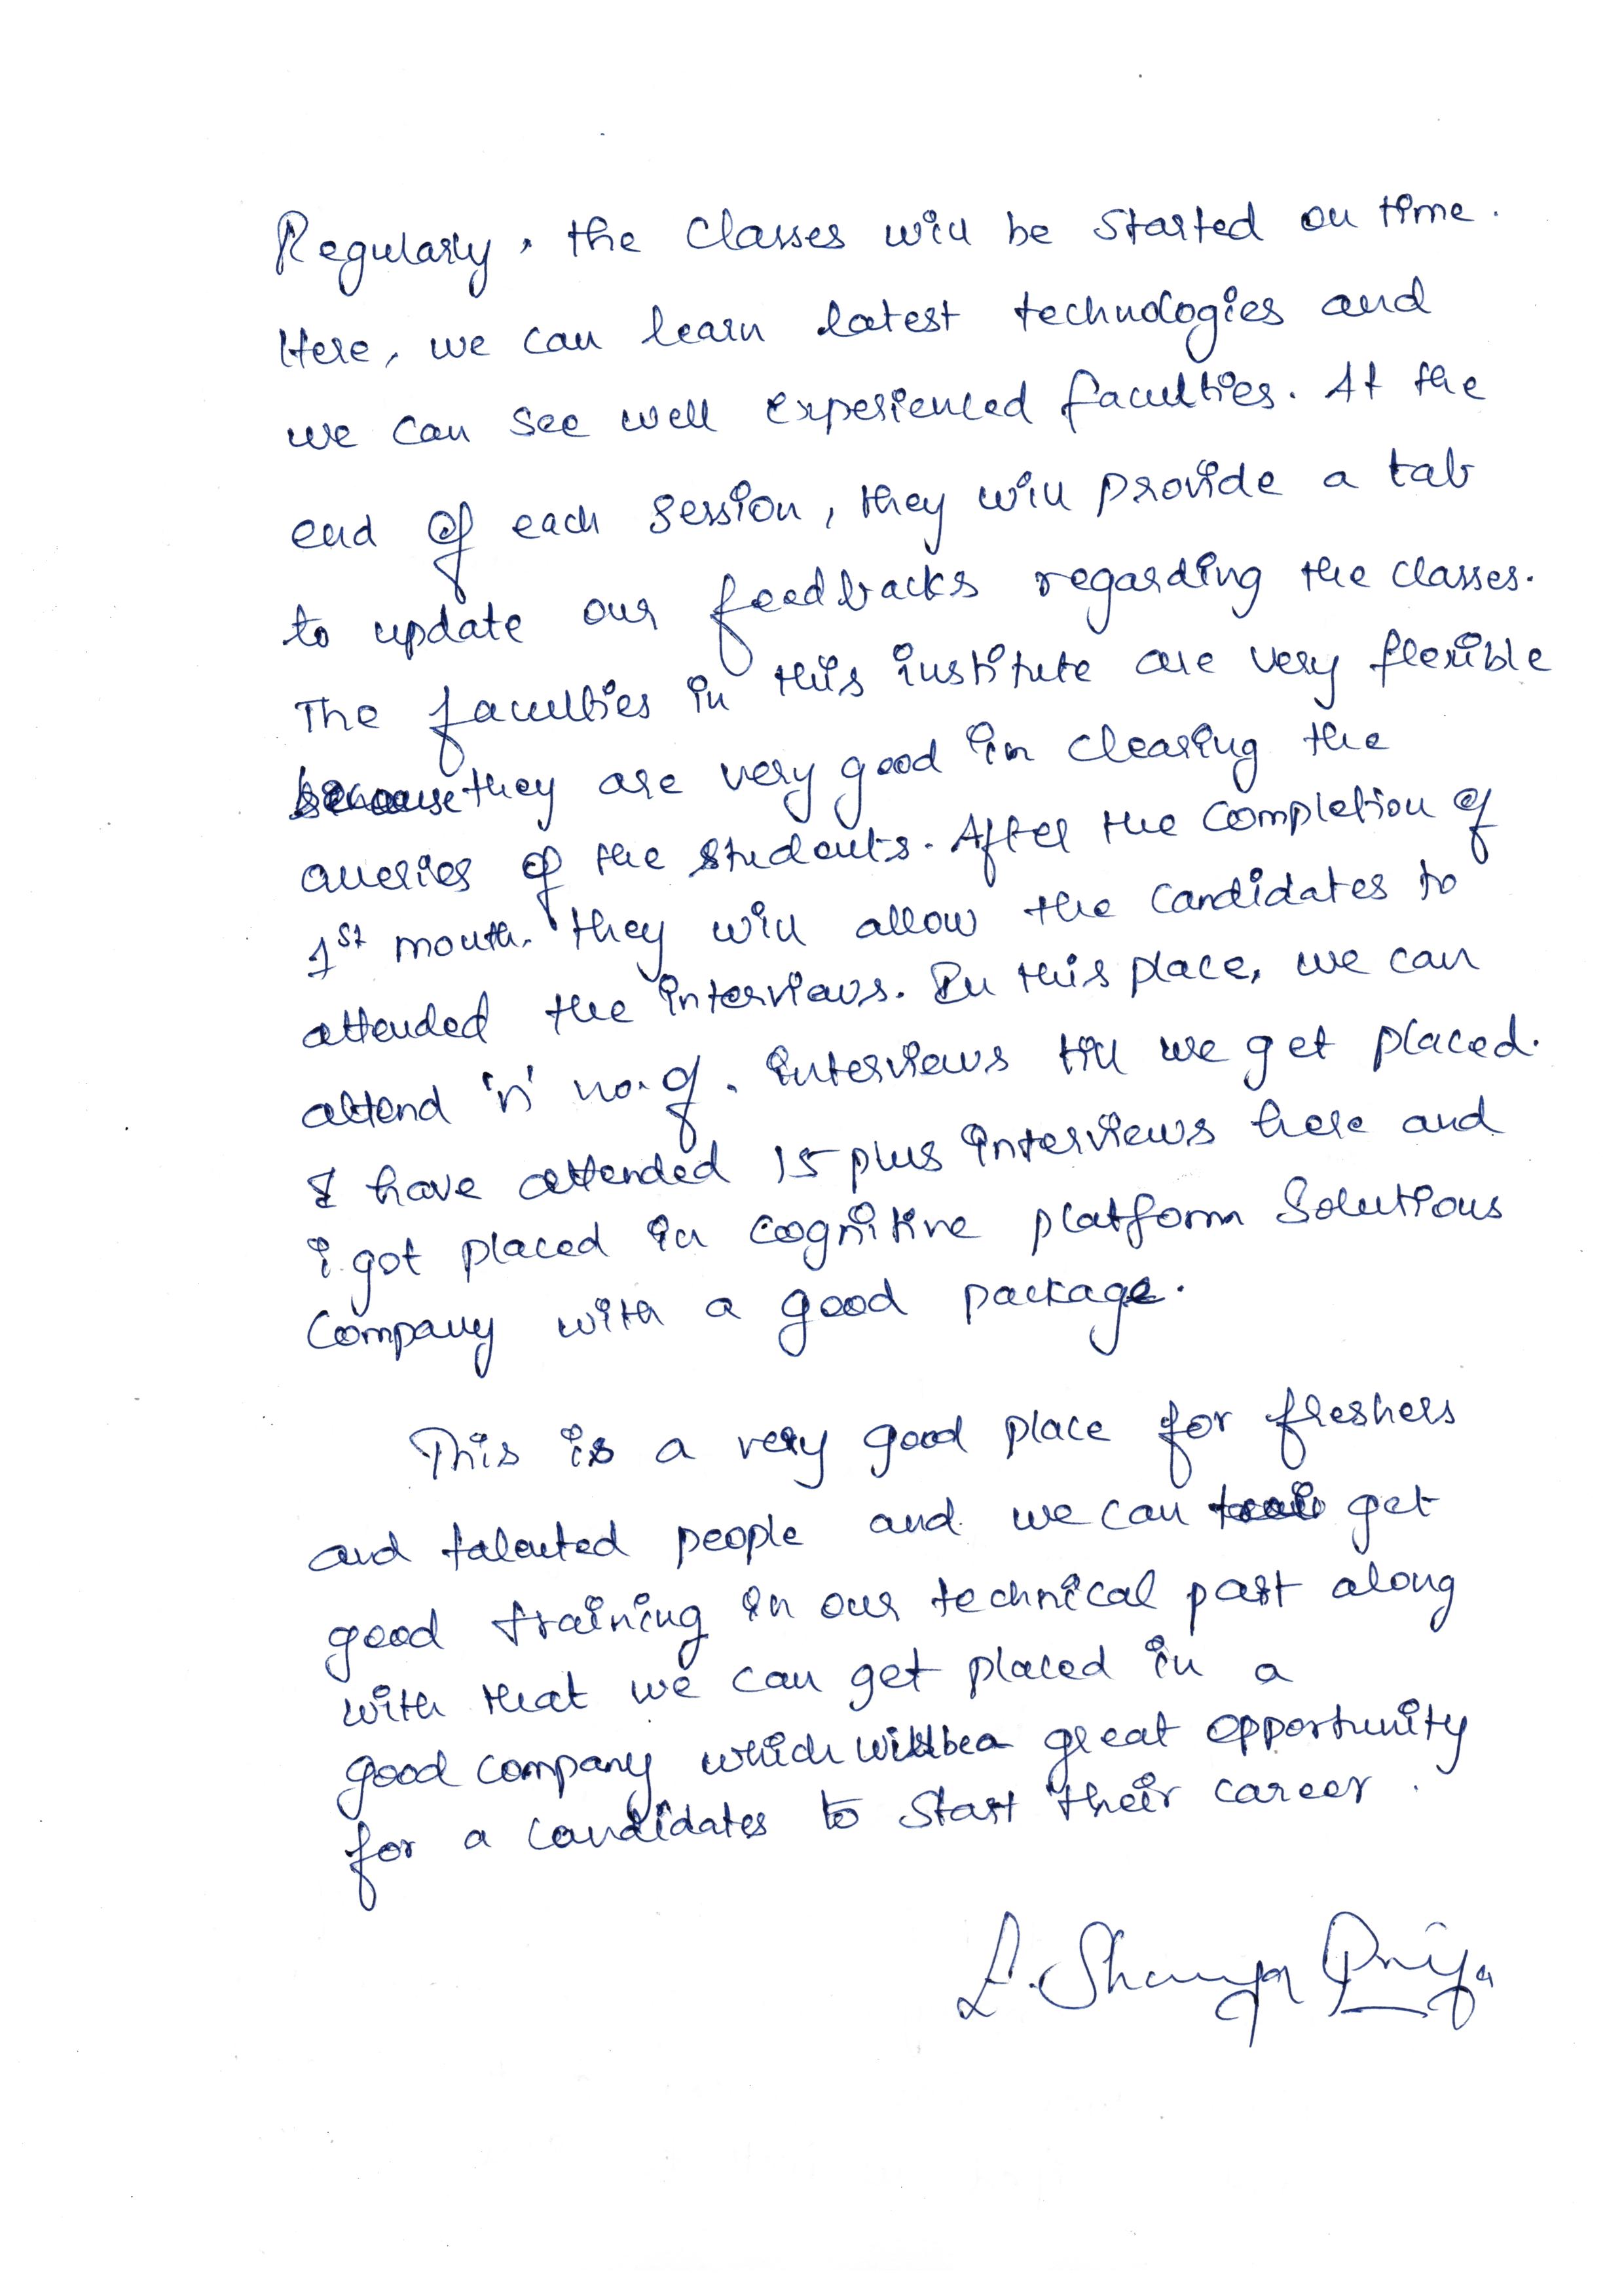 Regularly, the classes will be started on time.
Here, we can learn latest technologies and
we can see well experienced faculties. At the
end of each session, they will provide a tab
to update our feedbacks regarding the classes.
The faculties in this institute are very flexible
because they are very good in clearing the
queries of the students. After the completion of
1st month. they will allow the candidates to
attended the interviews. In this place, we can
attend 'n' no. of. interviews till we get placed.
I have attended 15 plus interviews here and
i got placed in cognitive platform Solutions
Company with a good package.
This is a very good place for freshers
and talented people and we can get
good training in our technical part along
with that we can get placed in a
good company which will be a great opportunity
for a candidates to start their career.
Priya